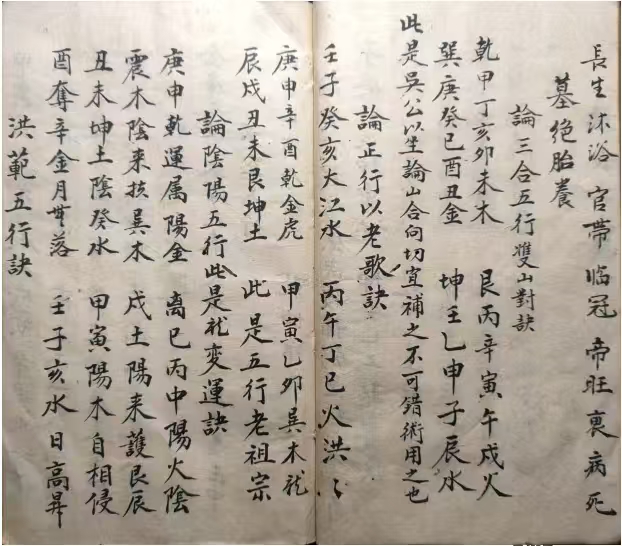 長生沐浴官帶临冠帝旺衰病死
墓絕胎養
論三合五行雙山對訣
乾甲丁亥卯未木 艮丙辛寅午戌火
巽庚癸巳酉丑金 坤壬乙申子辰水
此是吳公以坐論山合向切宜補之不可錯術用之也
論正行以老歌訣
壬子癸亥大江水 丙午丁巳火洪
庚申辛酉乾金虎 甲寅乙卯巽木龙
辰戌丑未艮坤土 此是五行老祖宗
論陰陽五行此是龙变運訣
庚申乾運属陽金 离巳丙中陽火陰
震木陰来扶巽木 戌土陽来護艮辰
丑未坤土陰癸水 甲寅陽木自相侵
酉奪辛金月落 壬子亥水日高昇
洪範五行訣